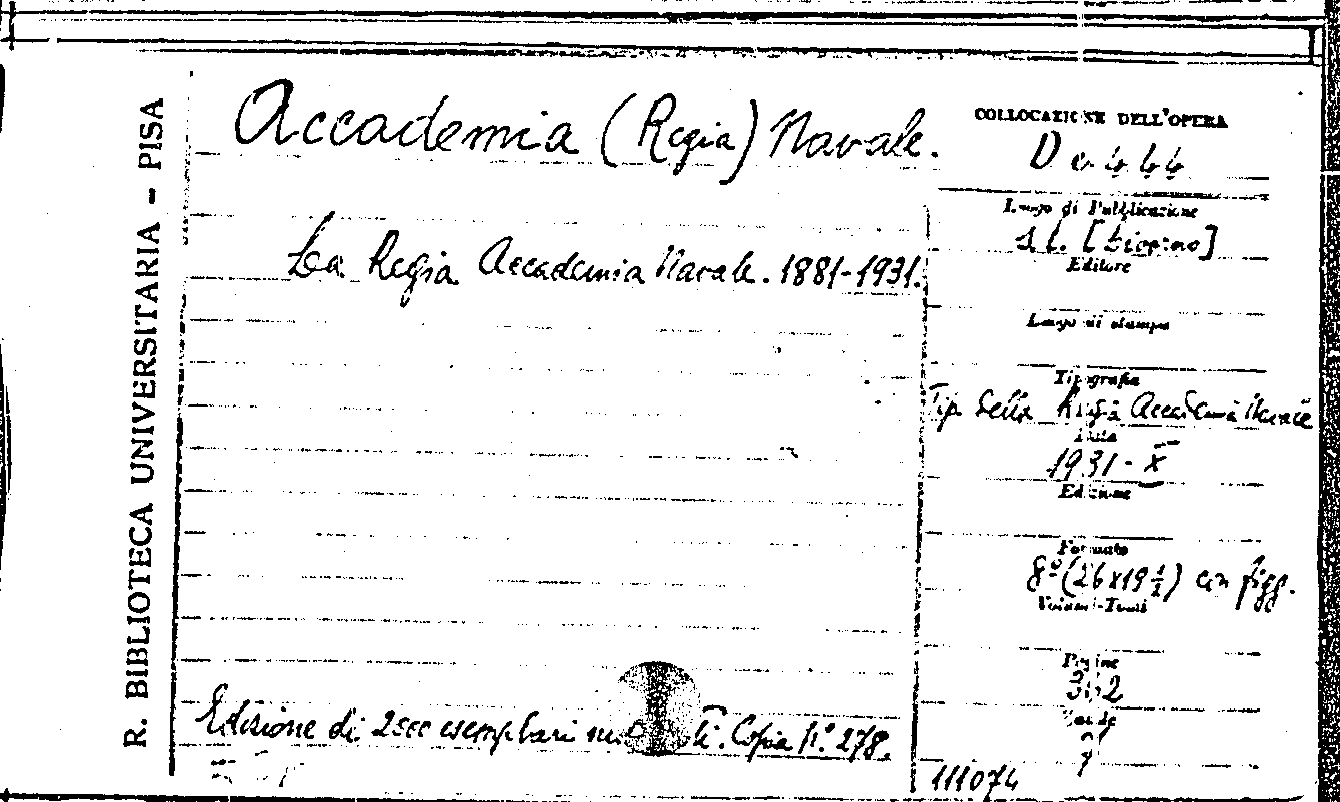 R. BIBLIOTECA UNIVERSITARIA - PISA
Accademia (Regia) Navale.
La Regia Accademia Navale. 1881-1931.
Edizione di 2000 esemplari Copia N.º 278.
COLLOCAZIONE DELL'OPERA
D e 4 44
Luogo di Pubblicazione
s. l. [Livorno]
Editore
Luogo di stampa
Tipografia
Tip. della Regia Accademia Navale
Data
1931 - X
Edizione
Formato
8º (26x19 ½) con figg.
Volumi-Tomi
Pagine
Tavole
111074